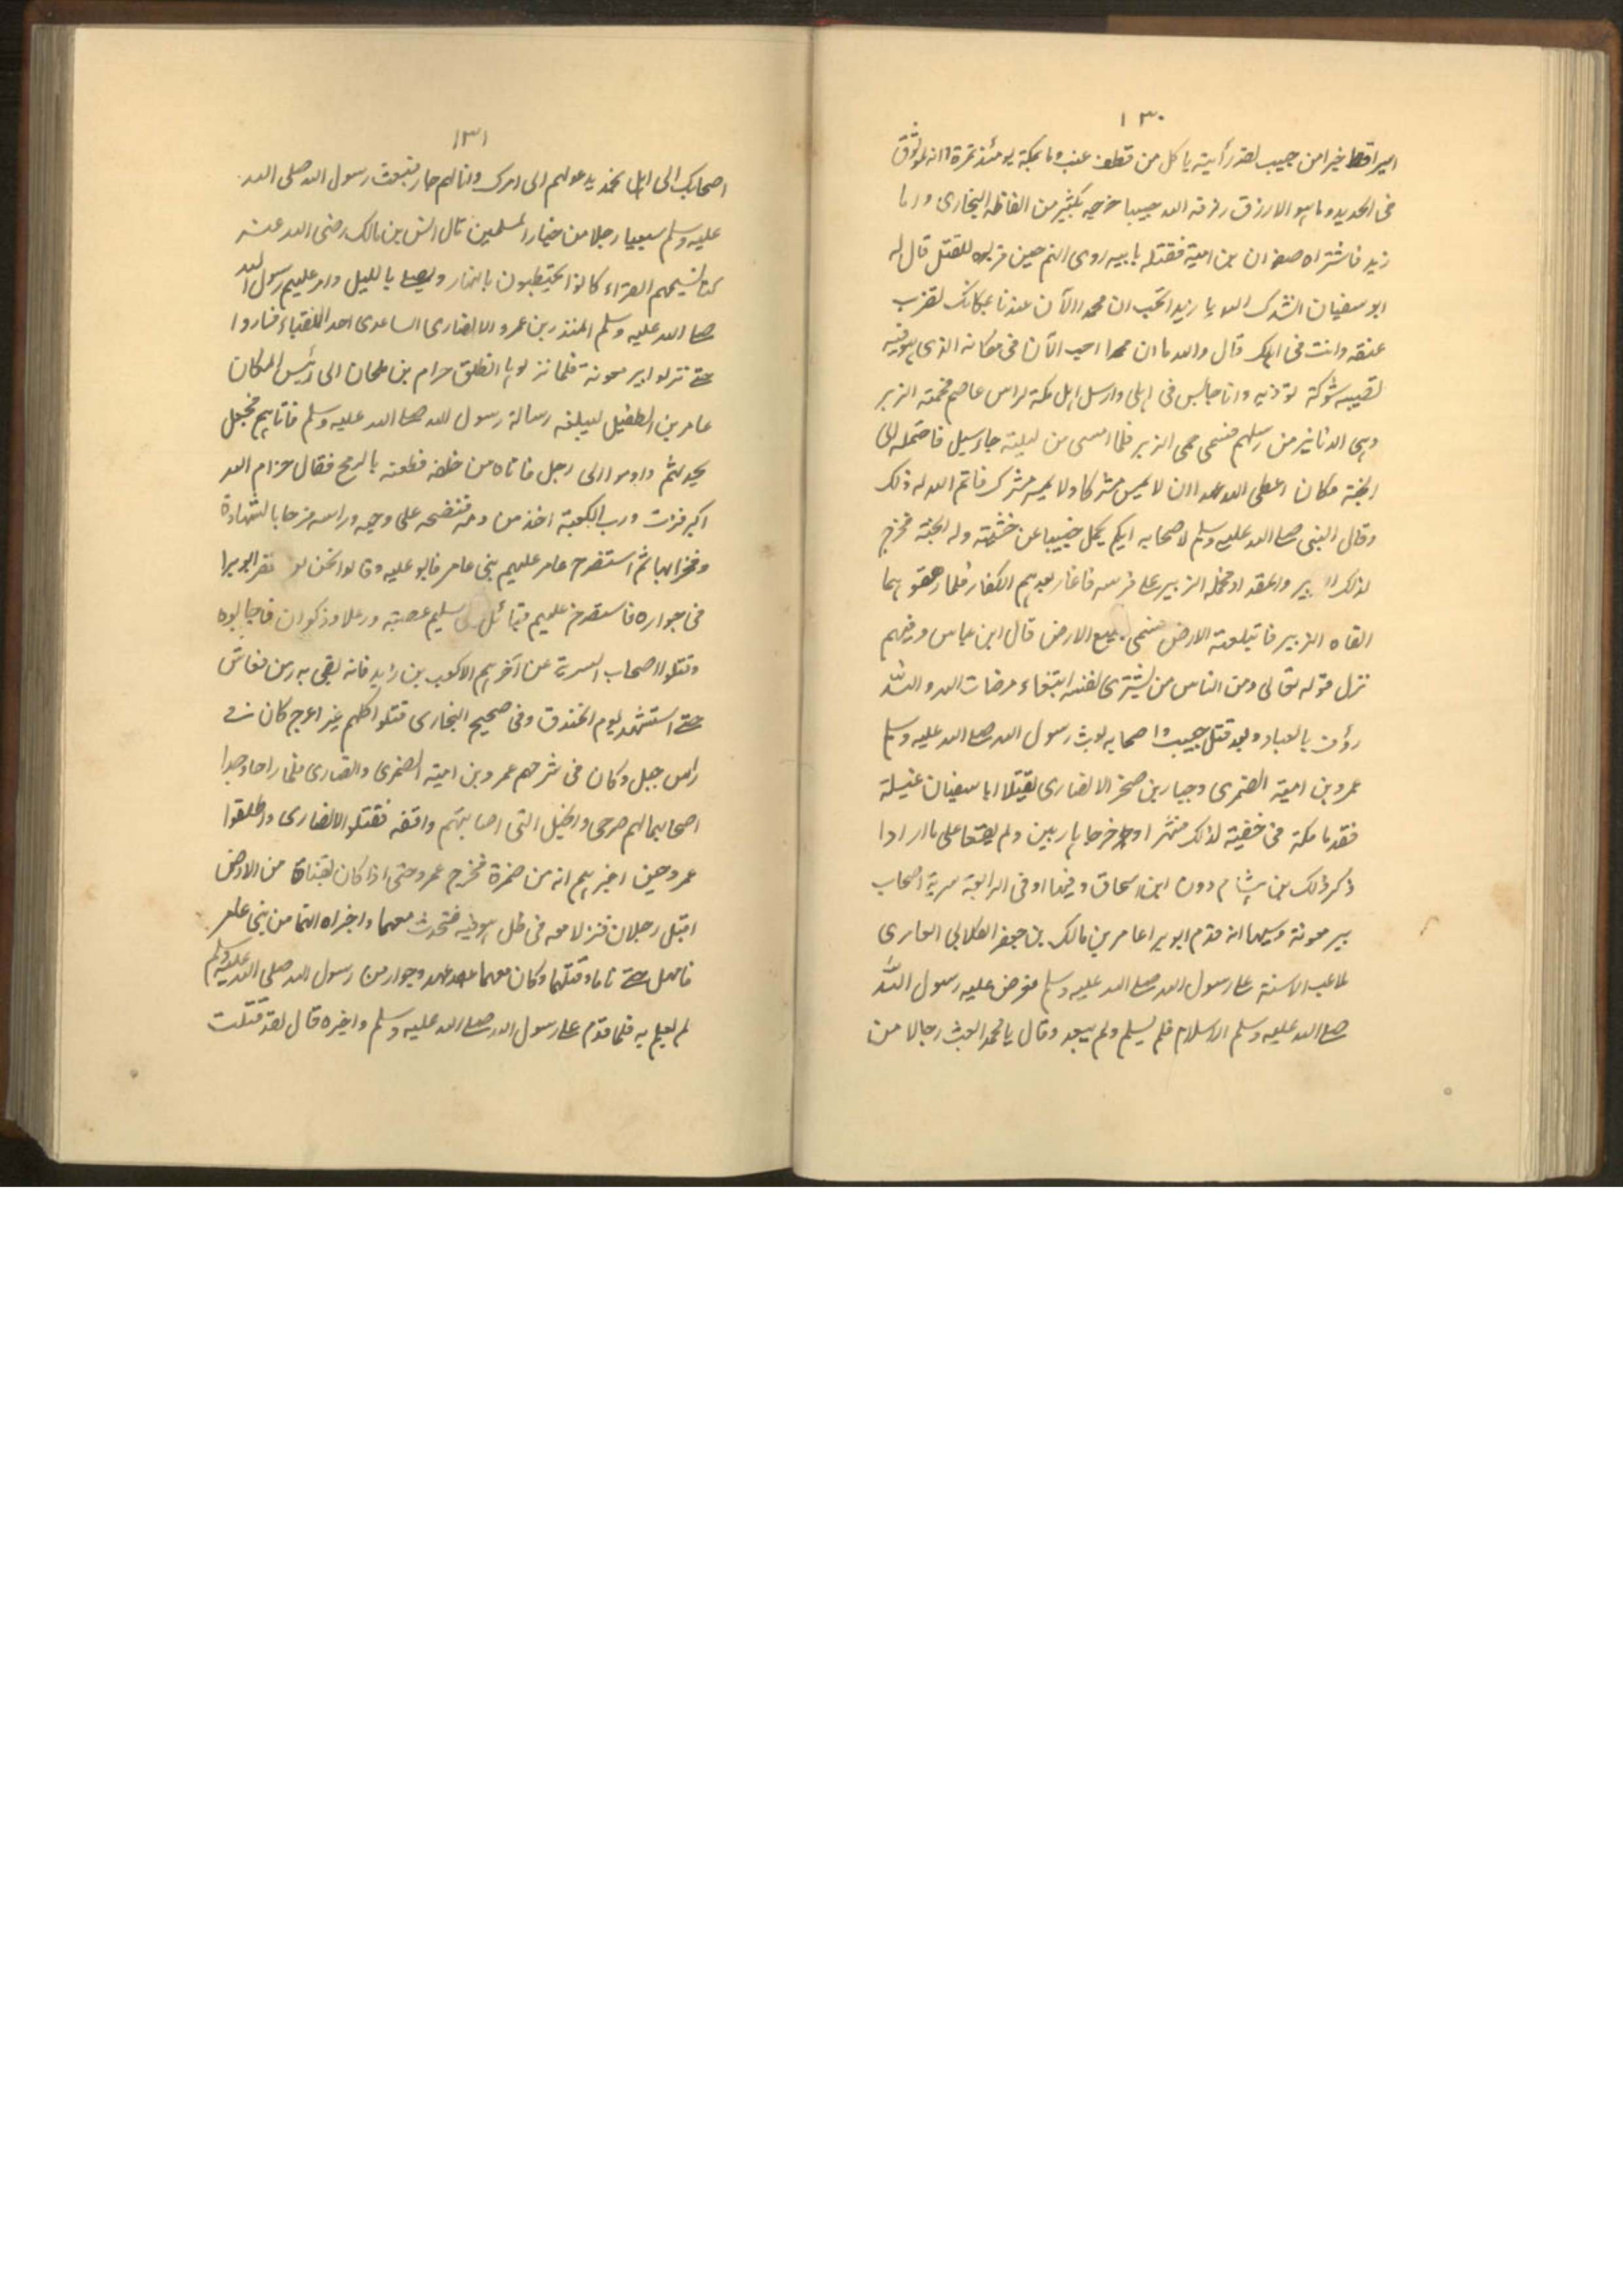 ١٣٠
اسيرا قط خيرا من حبيب لقد رأيته ياكل من قطف عنب وما بمكة يومئذ تمرة وانه لموثوق
فى الحديد وما هو الا رزق رزقه الله حبيبا خرجه بكثير من الفاظه البخارى واما
زيد فاشتراه صفوان بن امية فقتله بابيه روى انهم حين قربوه للقتل قال له
ابو سفيان انشدك الله يا زيد اتحب ان محمدا الآن عندنا بمكانك نضرب
عنقه وانت فى اهلك قال والله ما ان محمدا احب الآن فى مكانه الذى هو فيه
تصيبه شوكة توذيه وانا جالس فى اهلى وارسل اهل مكة لراس عاصم فحمته الزبر
وهى الدنانير من رسلهم فسمى حمى الزبر فلما امسى من ليلته جاء سيل فاحتمله الى
الجنة مكان اعطى الله عهدا ان لا يمس مشركا ولا يمسه مشرك فاتم الله له ذلك
وقال النبى صلى الله عليه وسلم لاصحابه ايكم يحمل خبيبا عن خشبته وله الجنة فخرج
لذلك الزبير والمقداد فحمله الزبير على فرسه فاغار بعدهم الكفار فلما رهقوهما
القاه الزبير فابتلعته الارض فسمى بليع الارض قال ابن عباس وفيهم
نزل قوله تعالى ومن الناس من يشترى نفسه ابتغاء مرضات الله والله
رؤف بالعباد وبعد قتل حبيب واصحابه بعث رسول الله صلى الله عليه وسلم
عمرو بن امية الضمرى وجبار بن صخر الانصارى ليقتلا ابا سفيان غيلة
فقدما مكة فى خفية لذلك فشهرا وخرجا هاربين ولم يقعا على ما ارادا
ذكر ذلك بن هشام دون ابن اسحاق وفيها او فى الرابعة سرية اصحاب
بير معونة وسببها انه قدم ابو برا عامر بن مالك بن جعفر الكلابى العامرى
ملاعب الاسنة على رسول الله صلى الله عليه وسلم فعرض عليه رسول الله
صلى الله عليه وسلم الاسلام فلم يسلم ولم يبعد وقال يا محمد ابعث رجالا من
١٣١
اصحابك الى اهل نجد يدعوهم الى امرك وانا لهم جار فبعث رسول الله صلى الله
عليه وسلم سبعين رجلا من خيار المسلمين قال انس بن مالك رضى الله عنه
كنا نسميهم القراء كانوا يحتطبون بالنهار ويصلون بالليل وامر عليهم رسول الله
صلى الله عليه وسلم المنذر بن عمرو الانصارى الساعدى احد النقباء فساروا
حتى نزلوا بير معونة فلما نزلوها انطلق حرام بن ملحان الى رئيس المكان
عامر بن الطفيل ليبلغه رسالة رسول الله صلى الله عليه وسلم فاتاهم فجعل
يحدثهم واومو الى رجل فاتاه من خلفه فطعنه بالرمح فقال حزام الله
اكبر فزت ورب الكعبة اخذ من دمه فنضحه على وجهه وراسه فرحا بالشهادة
وفخرا بها ثم استصرخ عامر عليهم بنى عامر فابو عليه وقالوا لن نخفر ابو برا
فى جواره فاستصرخ عليهم قبائل من سليم عصبة ورعلا وذكوان فاجابوه
وقتلوا اصحاب السرية عن آخرهم الا كعب بن زيد فانه بقى به رمق فعاش
حتى استشهد يوم الخندق وفى صحيح البخارى قتلوا كلهم غير اعرج كان فى
راس جبل وكان فى شرحهم عمرو بن امية الضمرى وانصارى فلما راحا وجدا
اصحابهما لهم صرعى والخيل التى اصابتهم واقفه فقتلوا الانصارى واطلقوا
عمرو حين اخبرهم انه من ضمرة فخرج عمرو حتى اذا كان بقناة من الارض
اقبل رجلان فنزلا معه فى ظل هو فيه فتحدث معهما واخبراه انهما من بنى عامر
فامهل حتى ناما وقتلهما وكان معهما عهد وجوار من رسول الله صلى الله عليه وسلم
لم يعلم به فلما قدم على رسول الله صلى الله عليه وسلم واخبره قال لقد قتلت